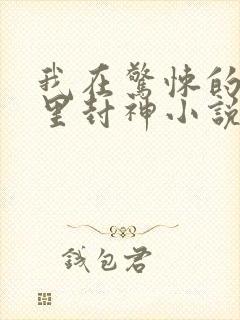 我在驚悚的
里封神小説
錢包君